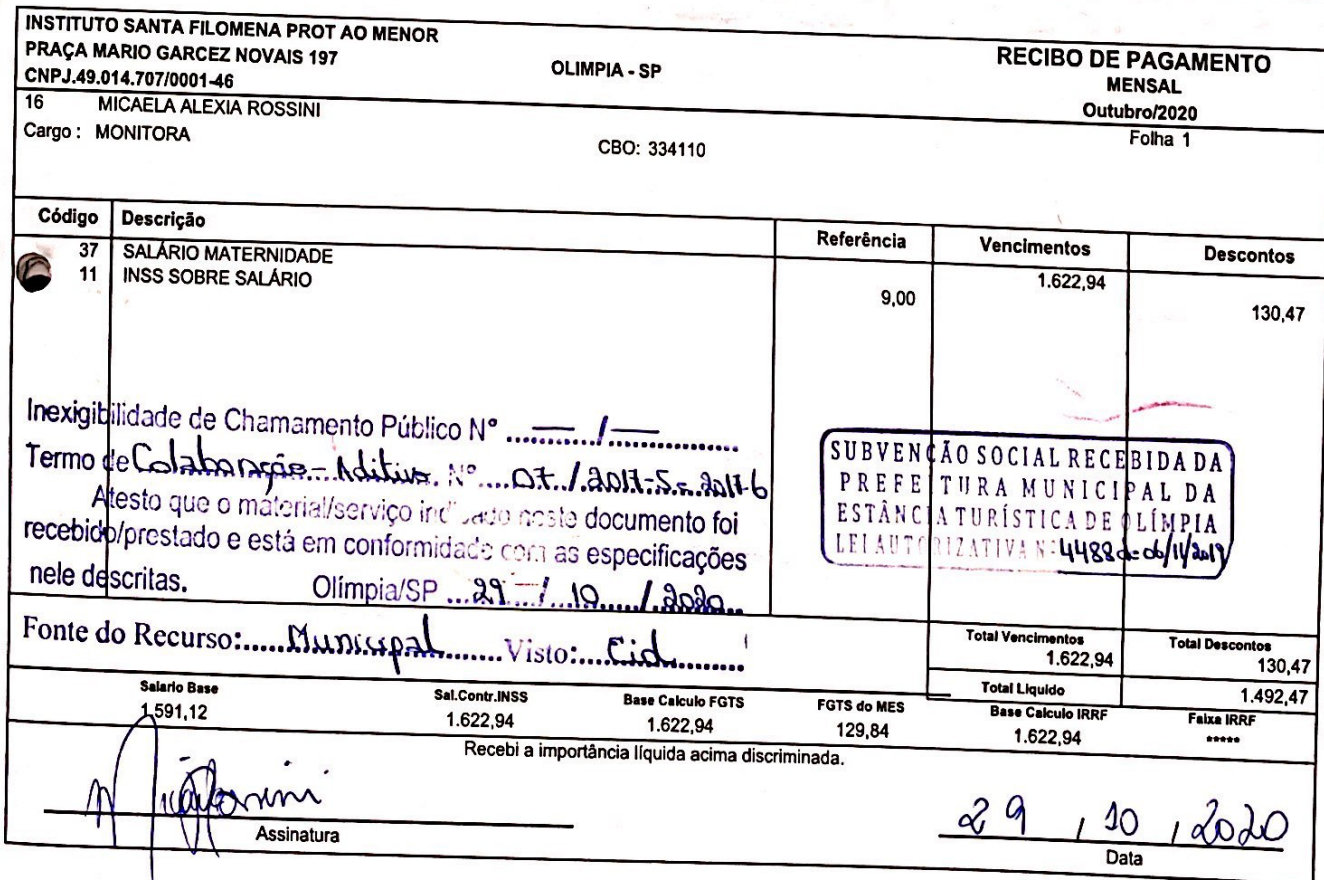 INSTITUTO SANTA FILOMENA PROT AO MENOR
PRAÇA MARIO GARCEZ NOVAIS 197
CNPJ.49.014.707/0001-46
OLIMPIA - SP
RECIBO DE PAGAMENTO
MENSAL
Outubro/2020
16 MICAELA ALEXIA ROSSINI
Cargo : MONITORA
CBO: 334110
Folha 1
Código Descrição Referência Vencimentos Descontos
37 SALÁRIO MATERNIDADE 1.622,94
11 INSS SOBRE SALÁRIO 9,00 130,47
Inexigibilidade de Chamamento Público Nº ...—.../...—...
Termo de Colaboração - Aditivo Nº 07/2017-5 - 2017-6
Atesto que o material/serviço indicado neste documento foi
recebido/prestado e está em conformidade com as especificações
nele descritas. Olímpia/SP ...29.../...10.../...2020...
SUBVENÇÃO SOCIAL RECEBIDA DA
PREFEITURA MUNICIPAL DA
ESTÂNCIA TURÍSTICA DE OLÍMPIA
LEI AUTORIZATIVA Nº 4488 de 06/11/2019
Fonte do Recurso:.....Municipal.......Visto:....Cid.........
Total Vencimentos Total Descontos
1.622,94 130,47
Total Liquido 1.492,47
Salario Base Sal.Contr.INSS Base Calculo FGTS FGTS do MES Base Calculo IRRF Faixa IRRF
1.591,12 1.622,94 1.622,94 129,84 1.622,94 *****
Recebi a importância líquida acima discriminada.
Assinatura
29 / 10 / 2020
Data